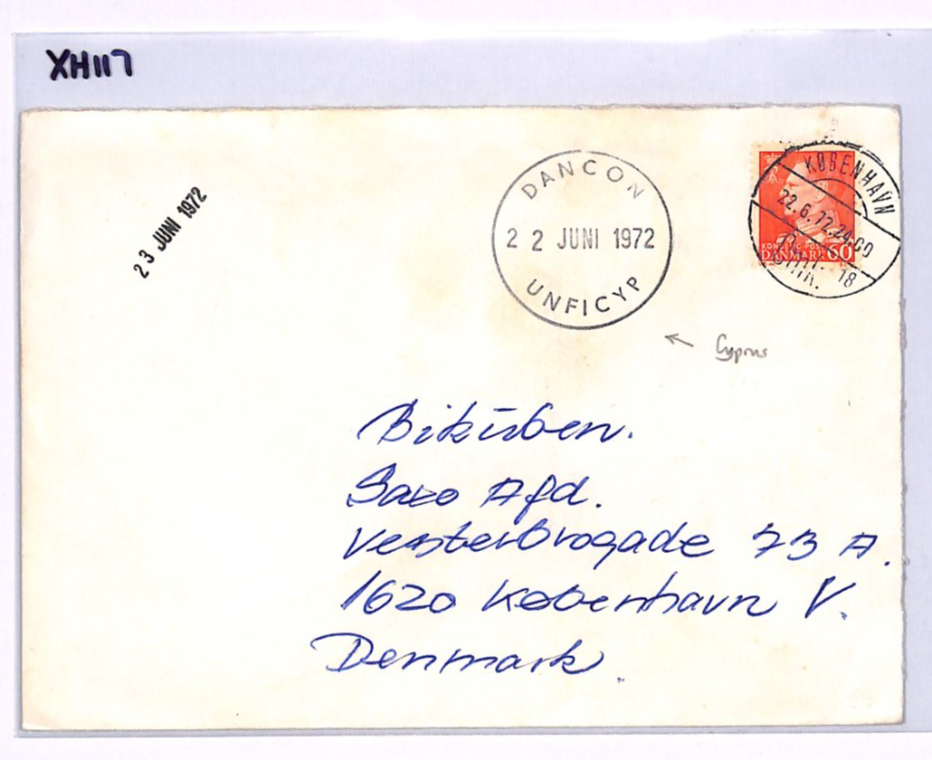 XH117
23 JUNI 1972
DANCON
22 JUNI 1972
UNFICYP
KØBENHAVN
22.6.72.24.00
OMK. 18
DANMARK 60
Cyprus
Bikuben.
Saxo Afd.
Vesterbrogade 73 A.
1620 København V.
Denmark.